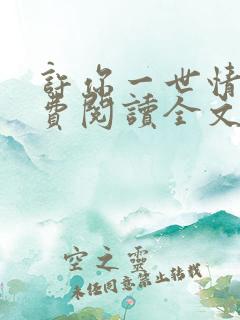 許你一世情
費閱讀全文
空之靈
未经同意禁止转载